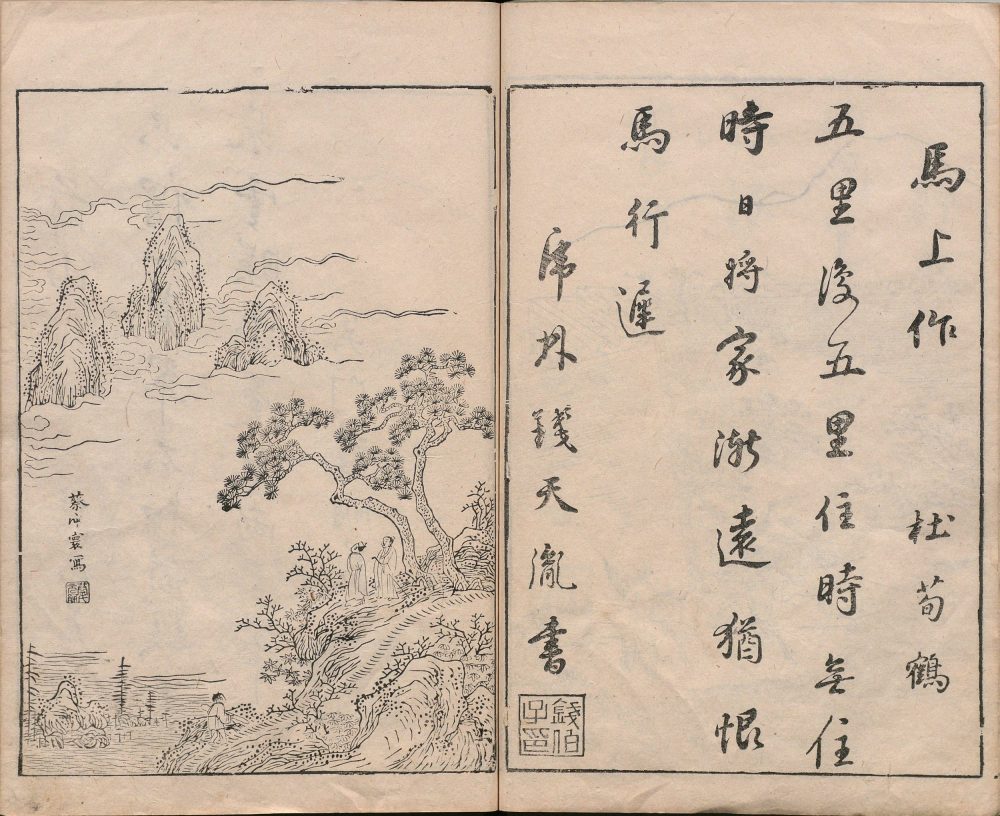 馬上作 杜荀鶴
五里復五里住時無住
時日將家漸遠猶恨
馬行遲
虎林錢天胤書
錢伯
子印
蔡冲寰寫